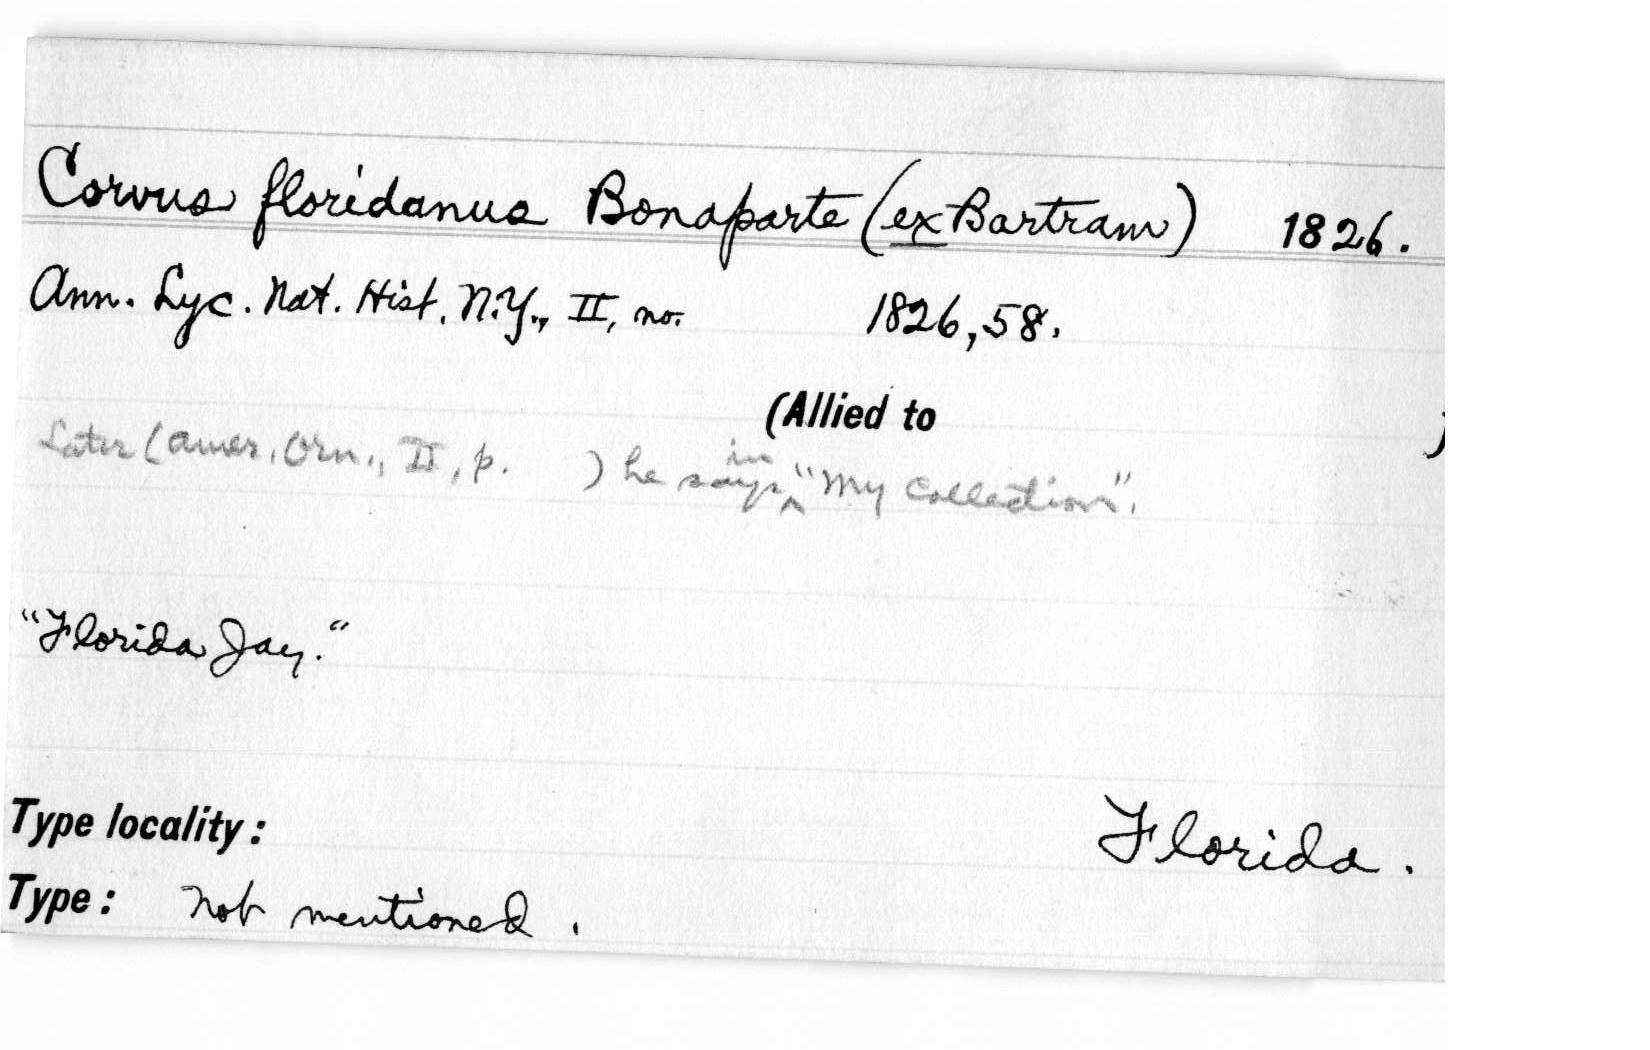 Corvus floridanus Bonaparte (ex Bartram) 1826.
Ann. Lyc. Nat. Hist. N.Y., II, no. 1826, 58.
(Allied to )
Later (Amer. Orn., II, p. ) he says in "My Collection".
"Florida Jay."
Type locality: Florida.
Type: not mentioned.